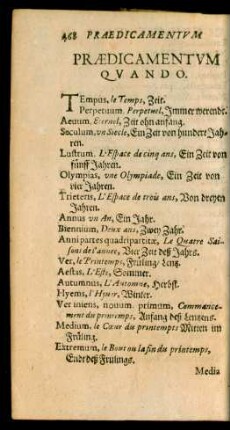 468 PRÆDICAMENTVM
PRÆDICAMENTVM
QVANDO.
TEmpus, le Temps, Zeit.
Perpetuum, Perpetuel, Jmmerwerendt.
Aeuum, Eternel, Zeit ohn anfang.
Seculum, vn Siecle, Ein Zeit von hundert Jah-
ren.
Lustrum, L'Espace de cinq ans, Ein Zeit von
fünff Jahren.
Olympias, vne Olympiade, Ein Zeit von
vier Jahren.
Trieteris, L'Espace de trois ans, Von dreyen
Jahren.
Annus vn An, Ein Jahr.
Biennium, Deux ans, Zwey Jahr.
Anni partes quadripartitæ, Le Quatre Sai-
sons de l'annee, Vier Zeit deß Jahrs.
Ver, le Printemps, Früling/ Lentz.
Aestas, L'Esté, Sommer.
Autumnus, L'Automne, Herbst.
Hyems, l'Hyuer, Winter.
Ver iniens, nouum, primum, Commance-
ment du printemps, Anfang deß Lentzens.
Medium, le Cœur du printemps Mitten im
Früling.
Extremum, le Bout ou la fin du printemps,
Endt deß Frülings.
Media